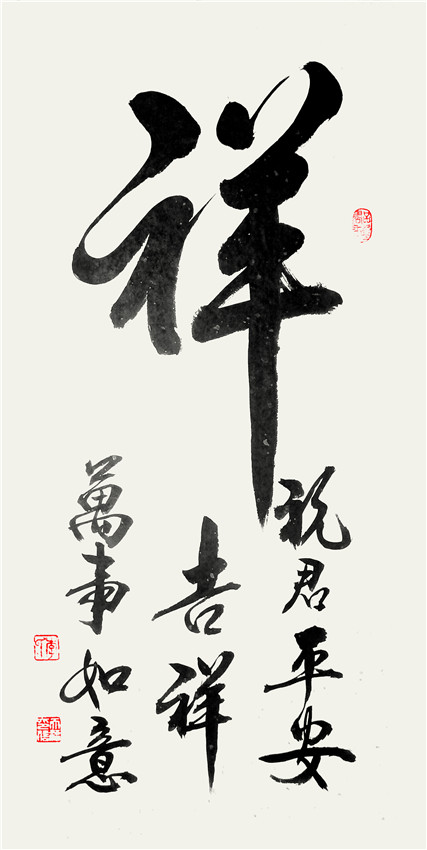 祥
祝君平安
吉祥
萬事如意